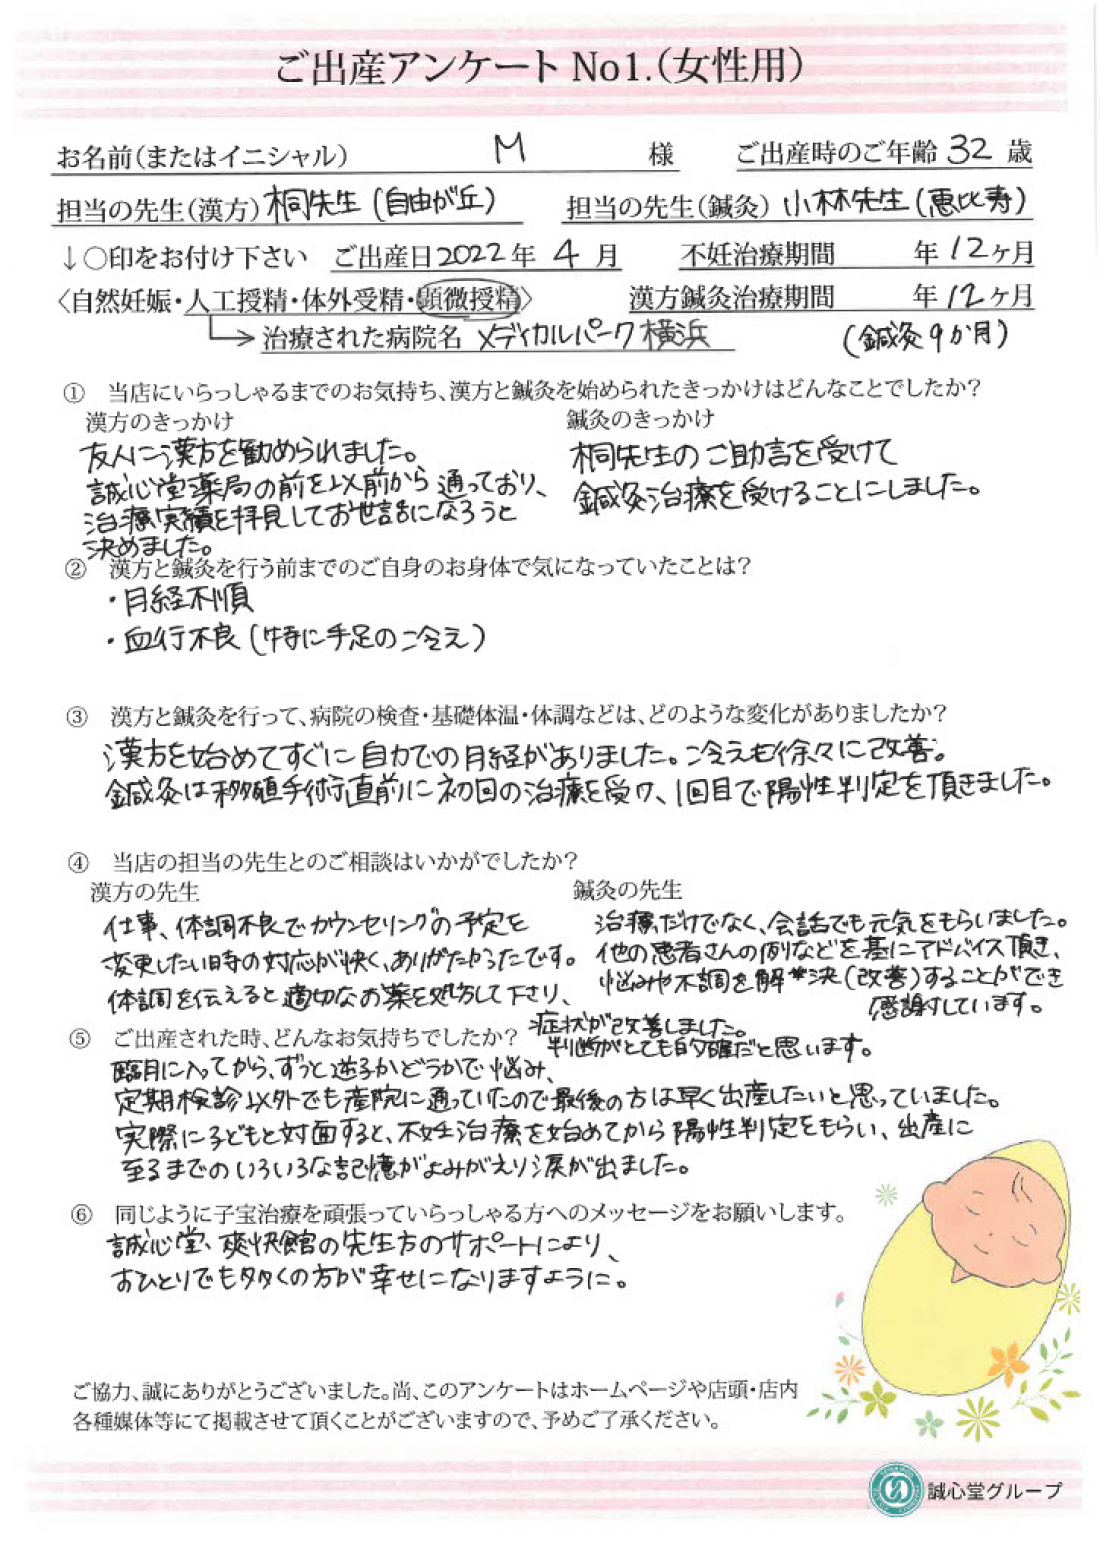 ご出産アンケート No1.(女性用)
お名前(またはイニシャル) M 様 ご出産時のご年齢 32 歳
担当の先生(漢方) 桐先生(自由が丘) 担当の先生(鍼灸) 小林先生(恵比寿)
↓○印をお付け下さい ご出産日2022年 4月 不妊治療期間 年12ヶ月
〈自然妊娠・人工授精・体外受精・顕微授精〉 漢方鍼灸治療期間 年12ヶ月
治療された病院名 メディカルパーク横浜 (鍼灸9か月)
① 当店にいらっしゃるまでのお気持ち、漢方と鍼灸を始められたきっかけはどんなことでしたか?
漢方のきっかけ
友人に漢方を勧められました。
誠心堂薬局の前を以前から通っており、
治療実績を拝見してお世話になろうと
決めました。
鍼灸のきっかけ
桐先生のご助言を受けて
鍼灸治療を受けることにしました。
② 漢方と鍼灸を行う前までのご自身のお身体で気になっていたことは?
・月経不順
・血行不良(特に手足の冷え)
③ 漢方と鍼灸を行って、病院の検査・基礎体温・体調などは、どのような変化がありましたか?
漢方を始めてすぐに自力での月経がありました。冷えも徐々に改善。
鍼灸は移植手術直前に初回の治療を受け、1回目で陽性判定を頂きました。
④ 当店の担当の先生とのご相談はいかがでしたか?
漢方の先生
仕事、体調不良でカウンセリングの予定を
変更したい時の対応が快く、ありがたかったです。
体調を伝えると適切なお薬を処方して下さり、
症状が改善しました。
判断がとても的確だと思います。
鍼灸の先生
治療だけでなく、会話でも元気をもらいました。
他の患者さんの例などを基にアドバイス頂き、
悩みや不調を解決(改善)することができ
感謝しています。
⑤ ご出産された時、どんなお気持ちでしたか?
臨月に入ってから、ずっと逆子かどうかで悩み、
定期検診以外でも産院に通っていたので最後の方は早く出産したいと思っていました。
実際に子どもと対面すると、不妊治療を始めてから陽性判定をもらい、出産に
至るまでのいろいろな記憶がよみがえり涙が出ました。
⑥ 同じように子宝治療を頑張っていらっしゃる方へのメッセージをお願いします。
誠心堂、爽快館の先生方のサポートにより、
おひとりでも多くの方が幸せになりますように。
ご協力、誠にありがとうございました。尚、このアンケートはホームページや店頭・店内
各種媒体等にて掲載させて頂くことがございますので、予めご了承ください。
誠心堂グループ